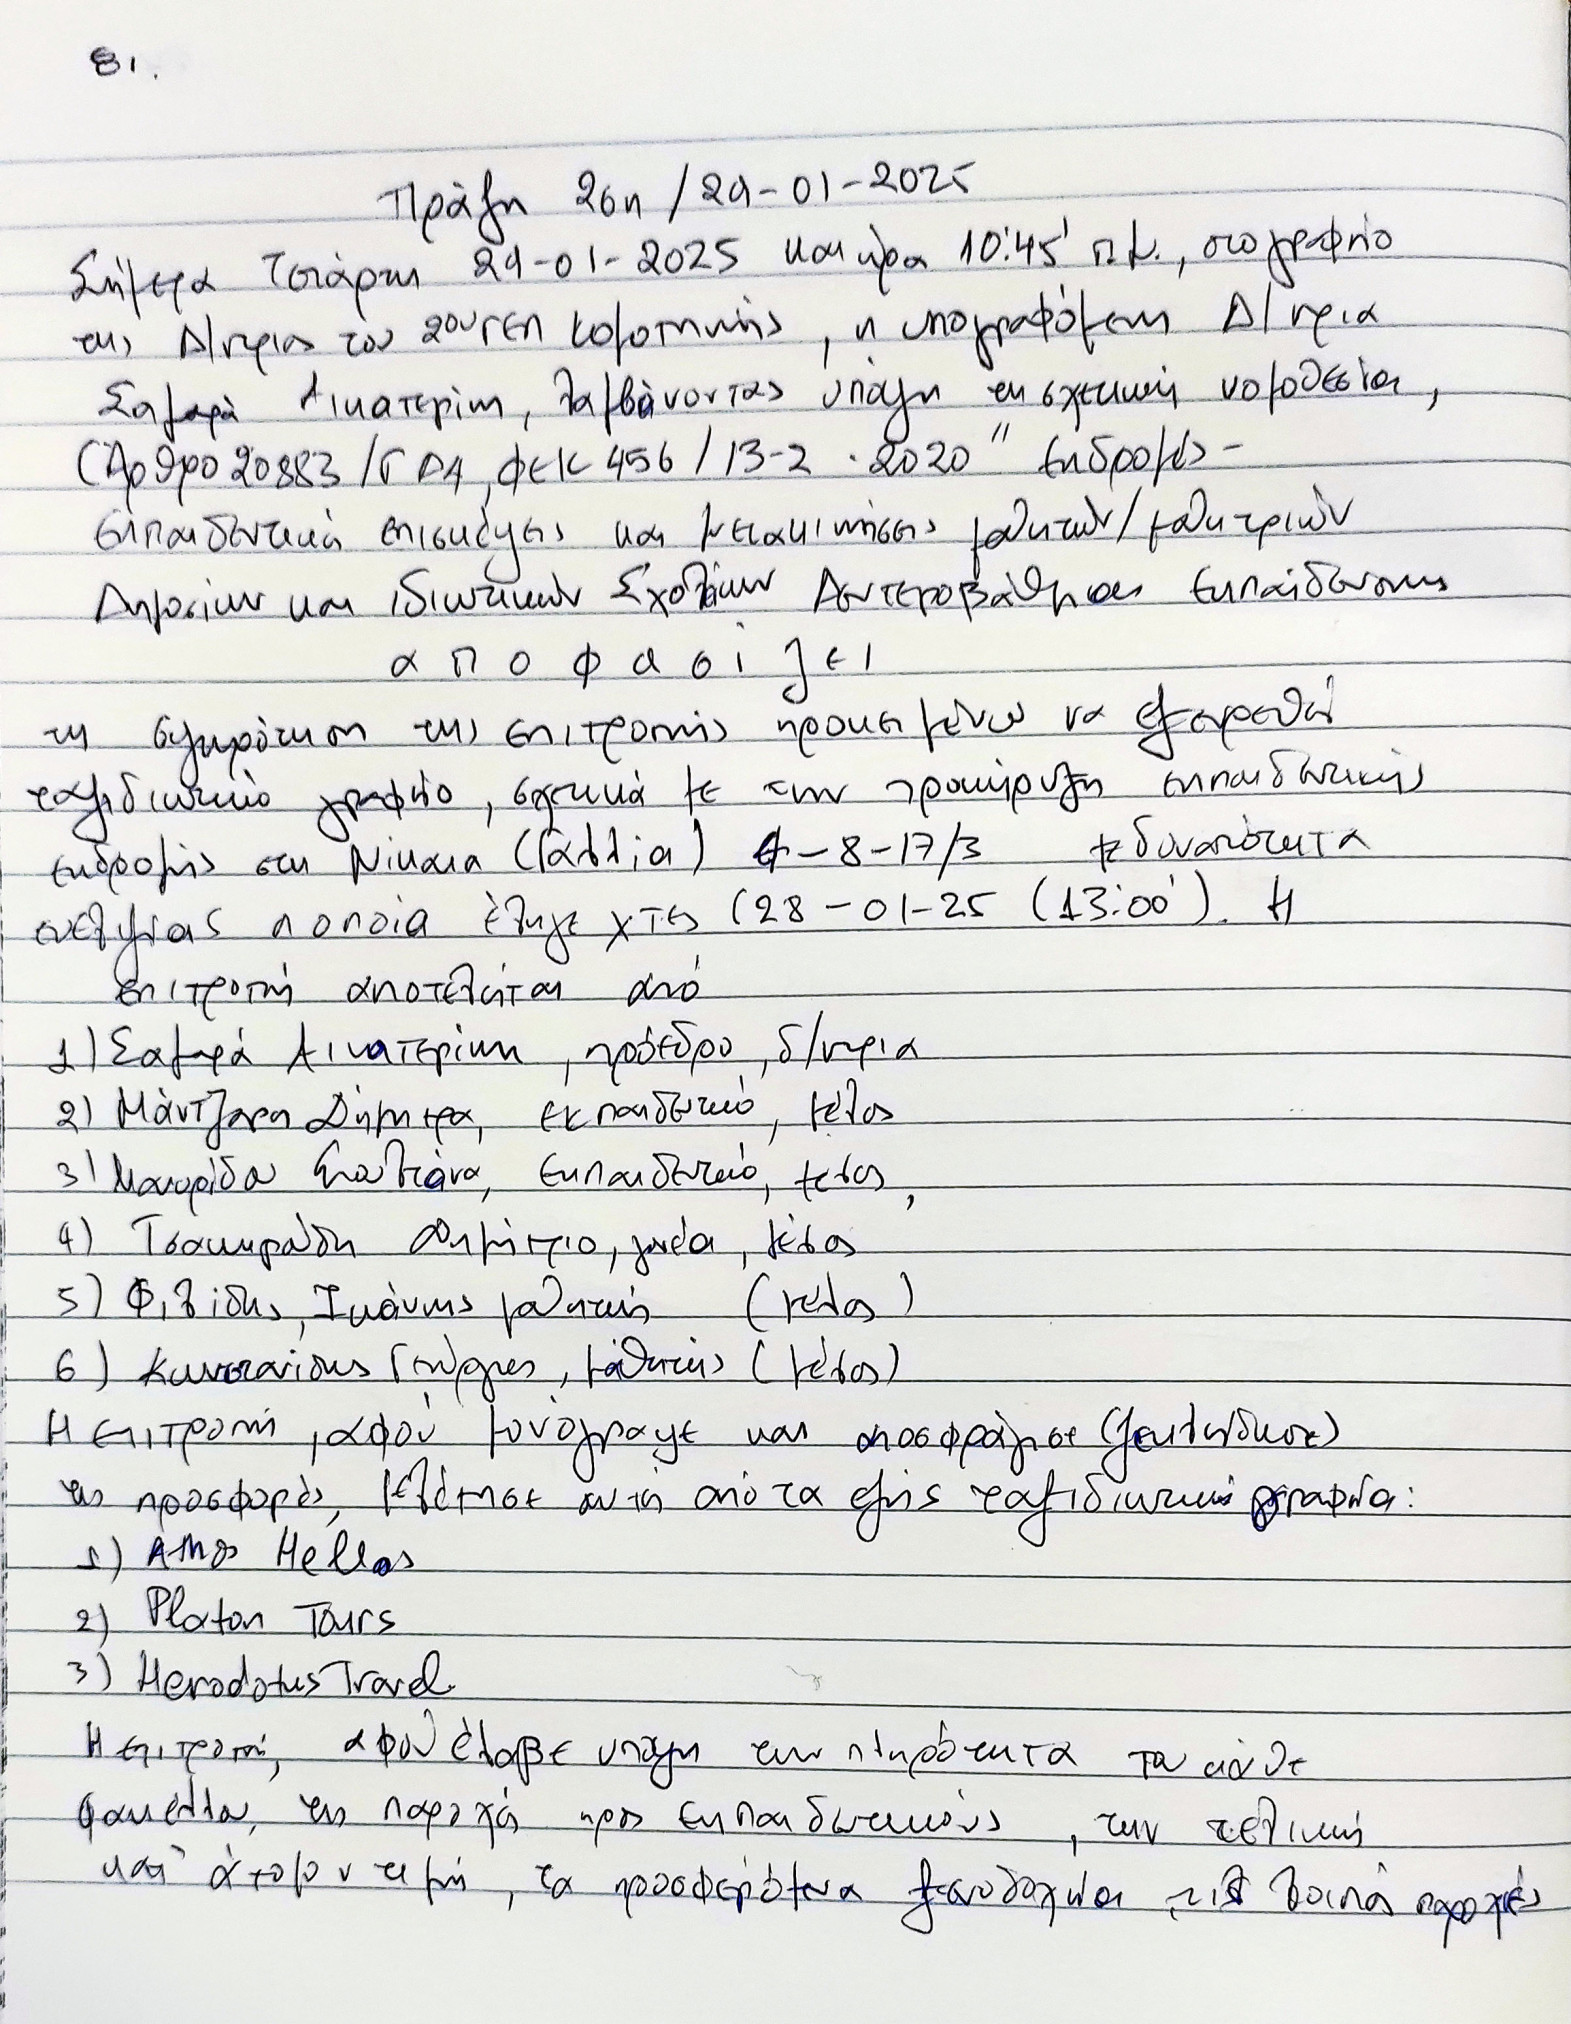 81.
Πράξη 26η / 29-01-2025
Σήμερα Τετάρτη 29-01-2025 και ώρα 10:45' π.μ., στο γραφείο
της Δ/ντριας του 2ου ΓΕΛ Κομοτηνής, η υπογραφόμενη Δ/ντρια
Σαμαρά Αικατερίνη, λαμβάνοντας υπόψη τη σχετική νομοθεσία,
(Άρθρο 20883/ΓΔ4, ΦΕΚ 456/13-2-2020 " Εκδρομές-
εκπαιδευτικές επισκέψεις και μετακινήσεις μαθητών/μαθητριών
Δημοσίων και ιδιωτικών Σχολείων Δευτεροβάθμιας Εκπαίδευσης
α π ο φ α σ ί ζ ε ι
τη συγκρότηση της επιτροπής προκειμένου να εξευρεθεί
ταξιδιωτικό γραφείο, σχετικά με την προκήρυξη εκπαιδευτικής
εκδρομής στη Νίκαια (Γαλλία) 8-17/3 με δυνατότητα
ευελιξίας η οποία έληξε χτες (28-01-25 (13:00'). Η
επιτροπή αποτελείται από
1) Σαμαρά Αικατερίνη, πρόεδρο, δ/ντρια
2) Μάντζαρη Δήμητρα, εκπαιδευτικό, μέλος
3) Μαυρίδου, εκπαιδευτικό, μέλος,
4) Τσακιρίδη Δημήτριο, γονέα, μέλος
5) Φιλίδης, Ιωάννης μαθητής (μέλος)
6) Κωνσταντινίδης Γεώργιος, μαθητής (μέλος)
Η επιτροπή, αφού μονόγραψε και αποσφράγισε (ξεκλείδωσε)
τις προσφορές, μελέτησε αυτές από τα εξής ταξιδιωτικά γραφεία:
1) Hellas
2) Platon Tours
3) Herodotus Travel.
Η επιτροπή, αφού έλαβε υπόψη την πληρότητα του κάθε
φακέλλου, τις παροχές προς εκπαιδευτικούς, την τελική
κατ' άτομον τιμή, τα προσφερόμενα ξενοδοχεία, τις λοιπές παροχές